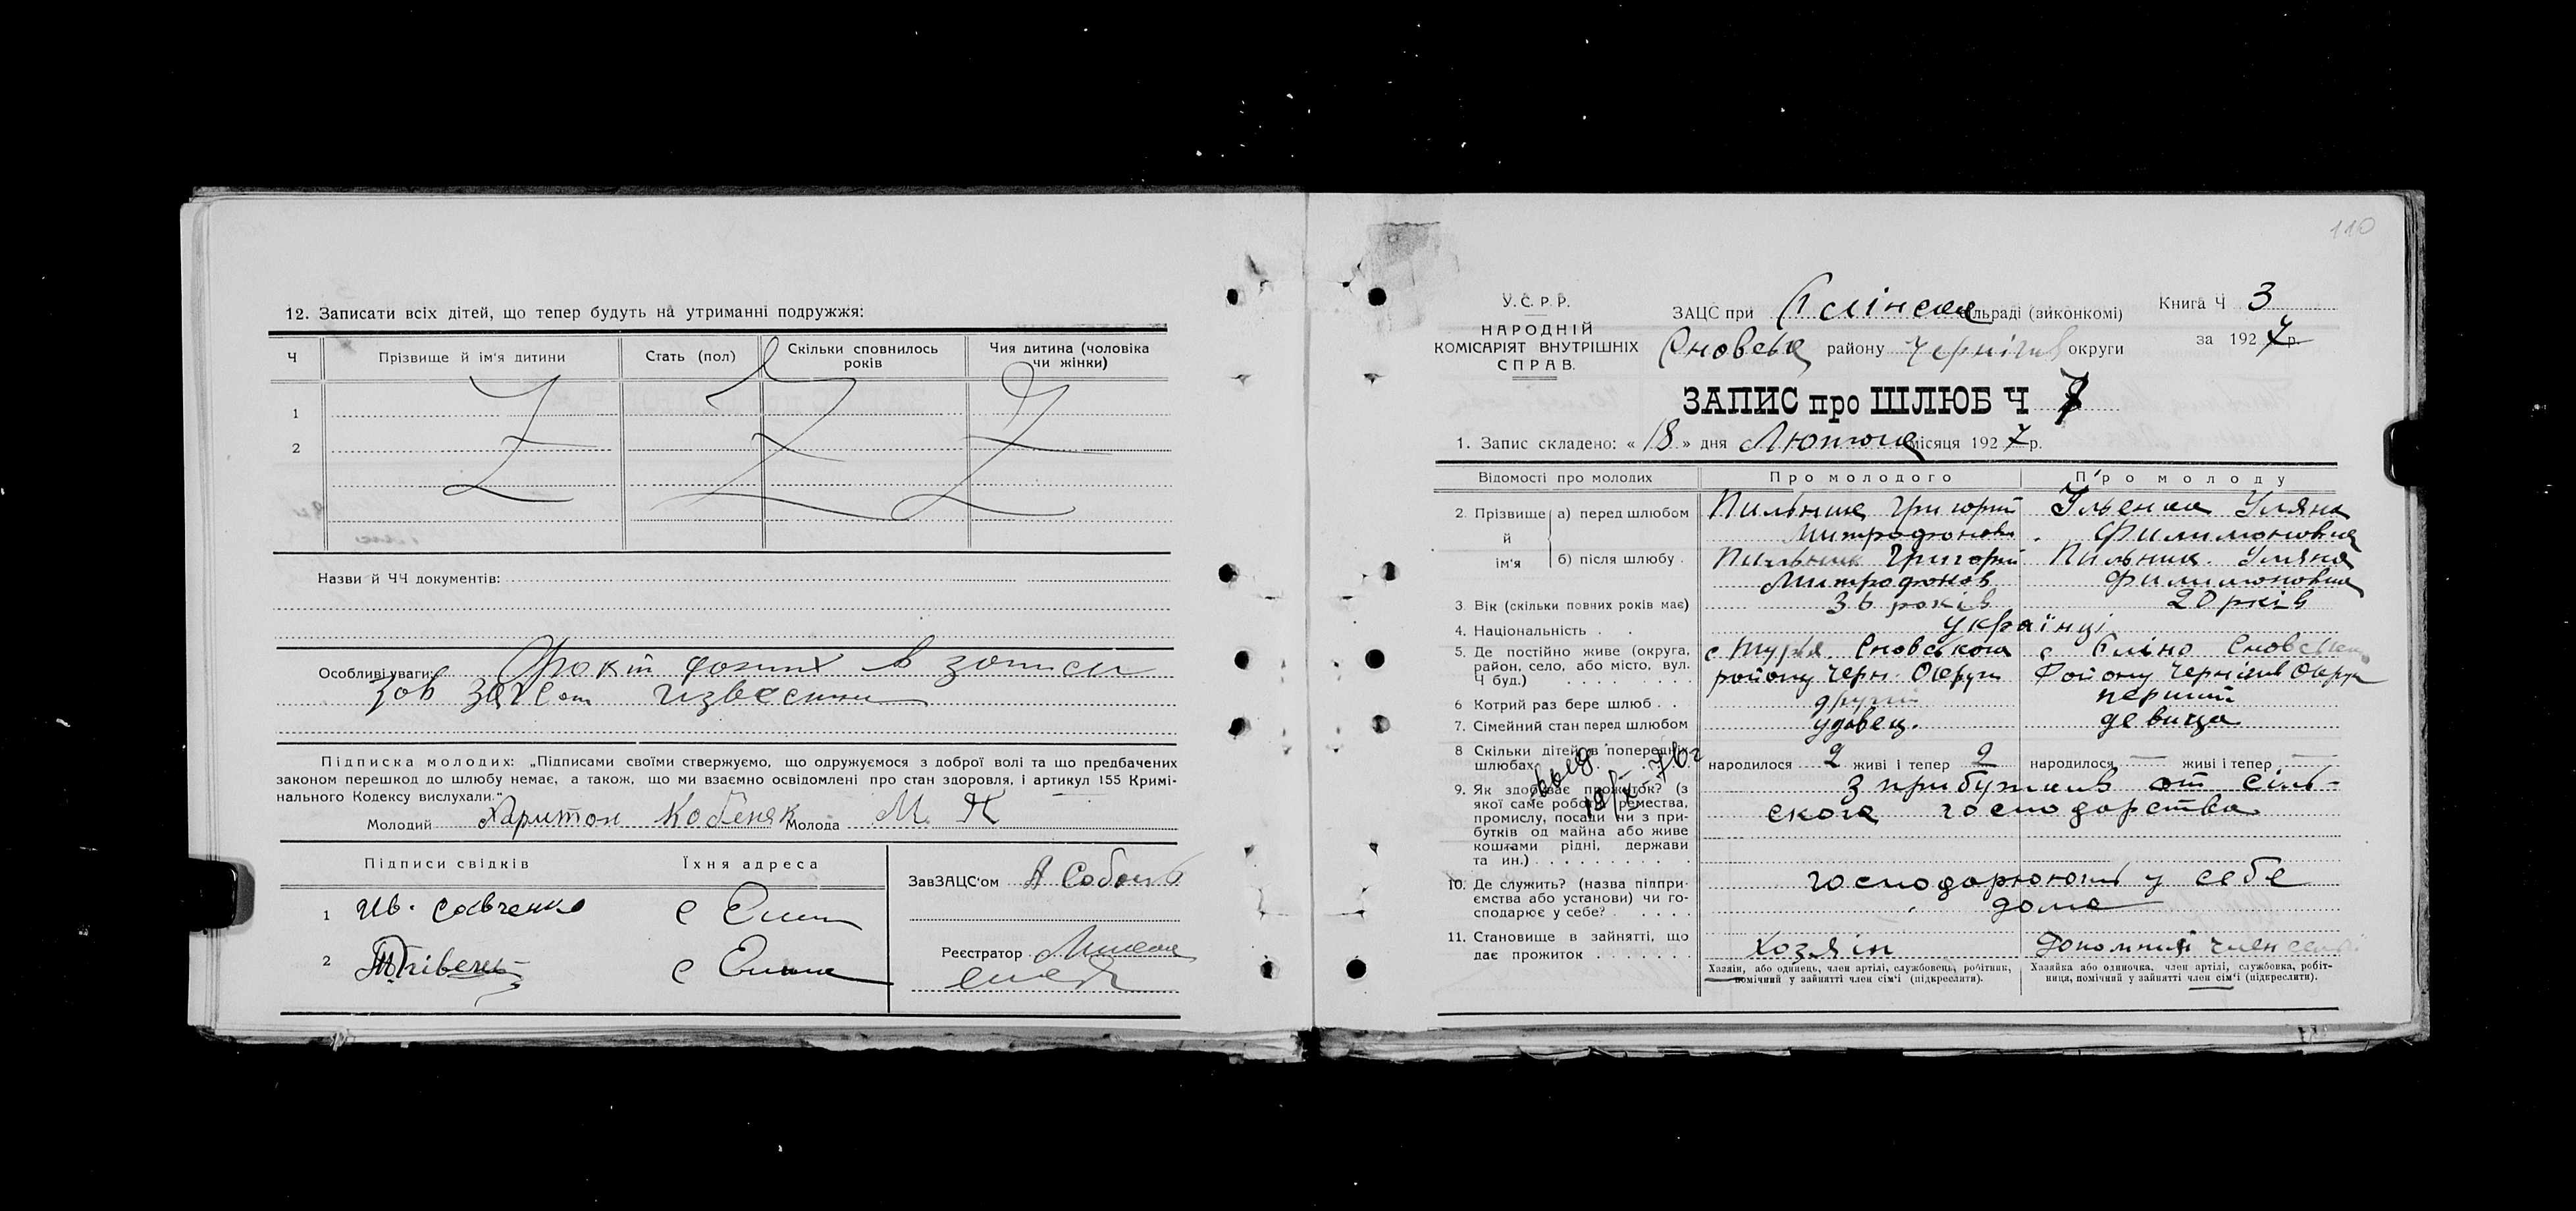 12. Записати всіх дітей, що тепер будуть на утриманні подружжя:
Ч Прізвище й ім'я дитини Стать (пол) Скільки сповнилось років Чия дитина (чоловіка чи жінки)
1
2
Назви й ЧЧ документів:
Особливі уваги: в записи
зов
Підписка молодих: „Підписами своїми ствержуємо, що одружуємося з доброї волі та що предбачених
законом перешкод до шлюбу немає, а також, що ми взаємно освідомлені про стан здоров'я, і артикул 155 Кримі-
нального Кодексу вислухали."
Молодий Харитон Кобеняк Молода М. К
Підписи свідків Їхня адреса
ЗавЗАЦС'ом А
1 Ив. Савченко с
2 с
Реєстратор
110
У.С.Р.Р.
НАРОДНІЙ
КОМІСАРІЯТ ВНУТРІШНІХ
СПРАВ.
ЗАЦС при льраді (виконкомі)
Сновськ району Чернігів округи
Книга Ч 3
за 1927 р.
ЗАПИС про ШЛЮБ Ч 7
1. Запис складено: « 18 » дня Лютого місяця 1927 р.
Відомості про молодих Про молодого Про молоду
2. Прізвище й ім'я а) перед шлюбом Пильник Григорій Уляна
Митрофонов Филимоновна
б) після шлюбу Пильник Григорій Пильник Уляна
Митрофонов Филимоновна
3. Вік (скільки повних років має) 36 років 20 рків
4. Національність українці
5. Де постійно живе (округа, район, село, або місто, вул. Ч буд.) с Турья Сновського с Єліно Сновськ
району Черн. Округи Району Чернігів Округ
6 Котрий раз бере шлюб другий перший
7. Сімейний стан перед шлюбом удовец. девица
8 Скільки дітей в попередніх шлюбах народилося 2 живі і тепер 2 народилося — живі і тепер —
выд. 19/X 76 г
9. Як здобуває прожиток? (з якої саме роботи, ремества, промислу, посади чи з прибутків од майна або живе коштами рідні, держави та ин.) з прибутків от сіль-
ского господарства
10. Де служить? (назва підпри-ємства або установи) чи го-сподарює у себе? господарюють у себе
дома
11. Становище в зайнятті, що дає прожиток хозяін член
Хазяїн, або одинець, член артілі, службовець, робітник, помічний у зайнятті член сім'ї (підкреслити).
Хазяйка або одиночка, член артілі, службовка, робіт-ниця, помічний у зайнятті член сім'ї (підкреслити).